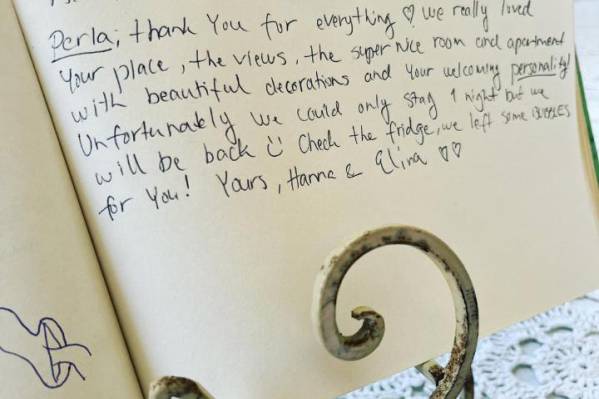 Perla, thank You for everything ♡ we really loved
Your place, the views, the super nice room and apartment
with beautiful decorations and Your welcoming personality!
Unfortunately we could only stay 1 night but we
will be back Check the fridge, we left some BUBBLES
for You! Yours, Hanna & Elina ♡♡